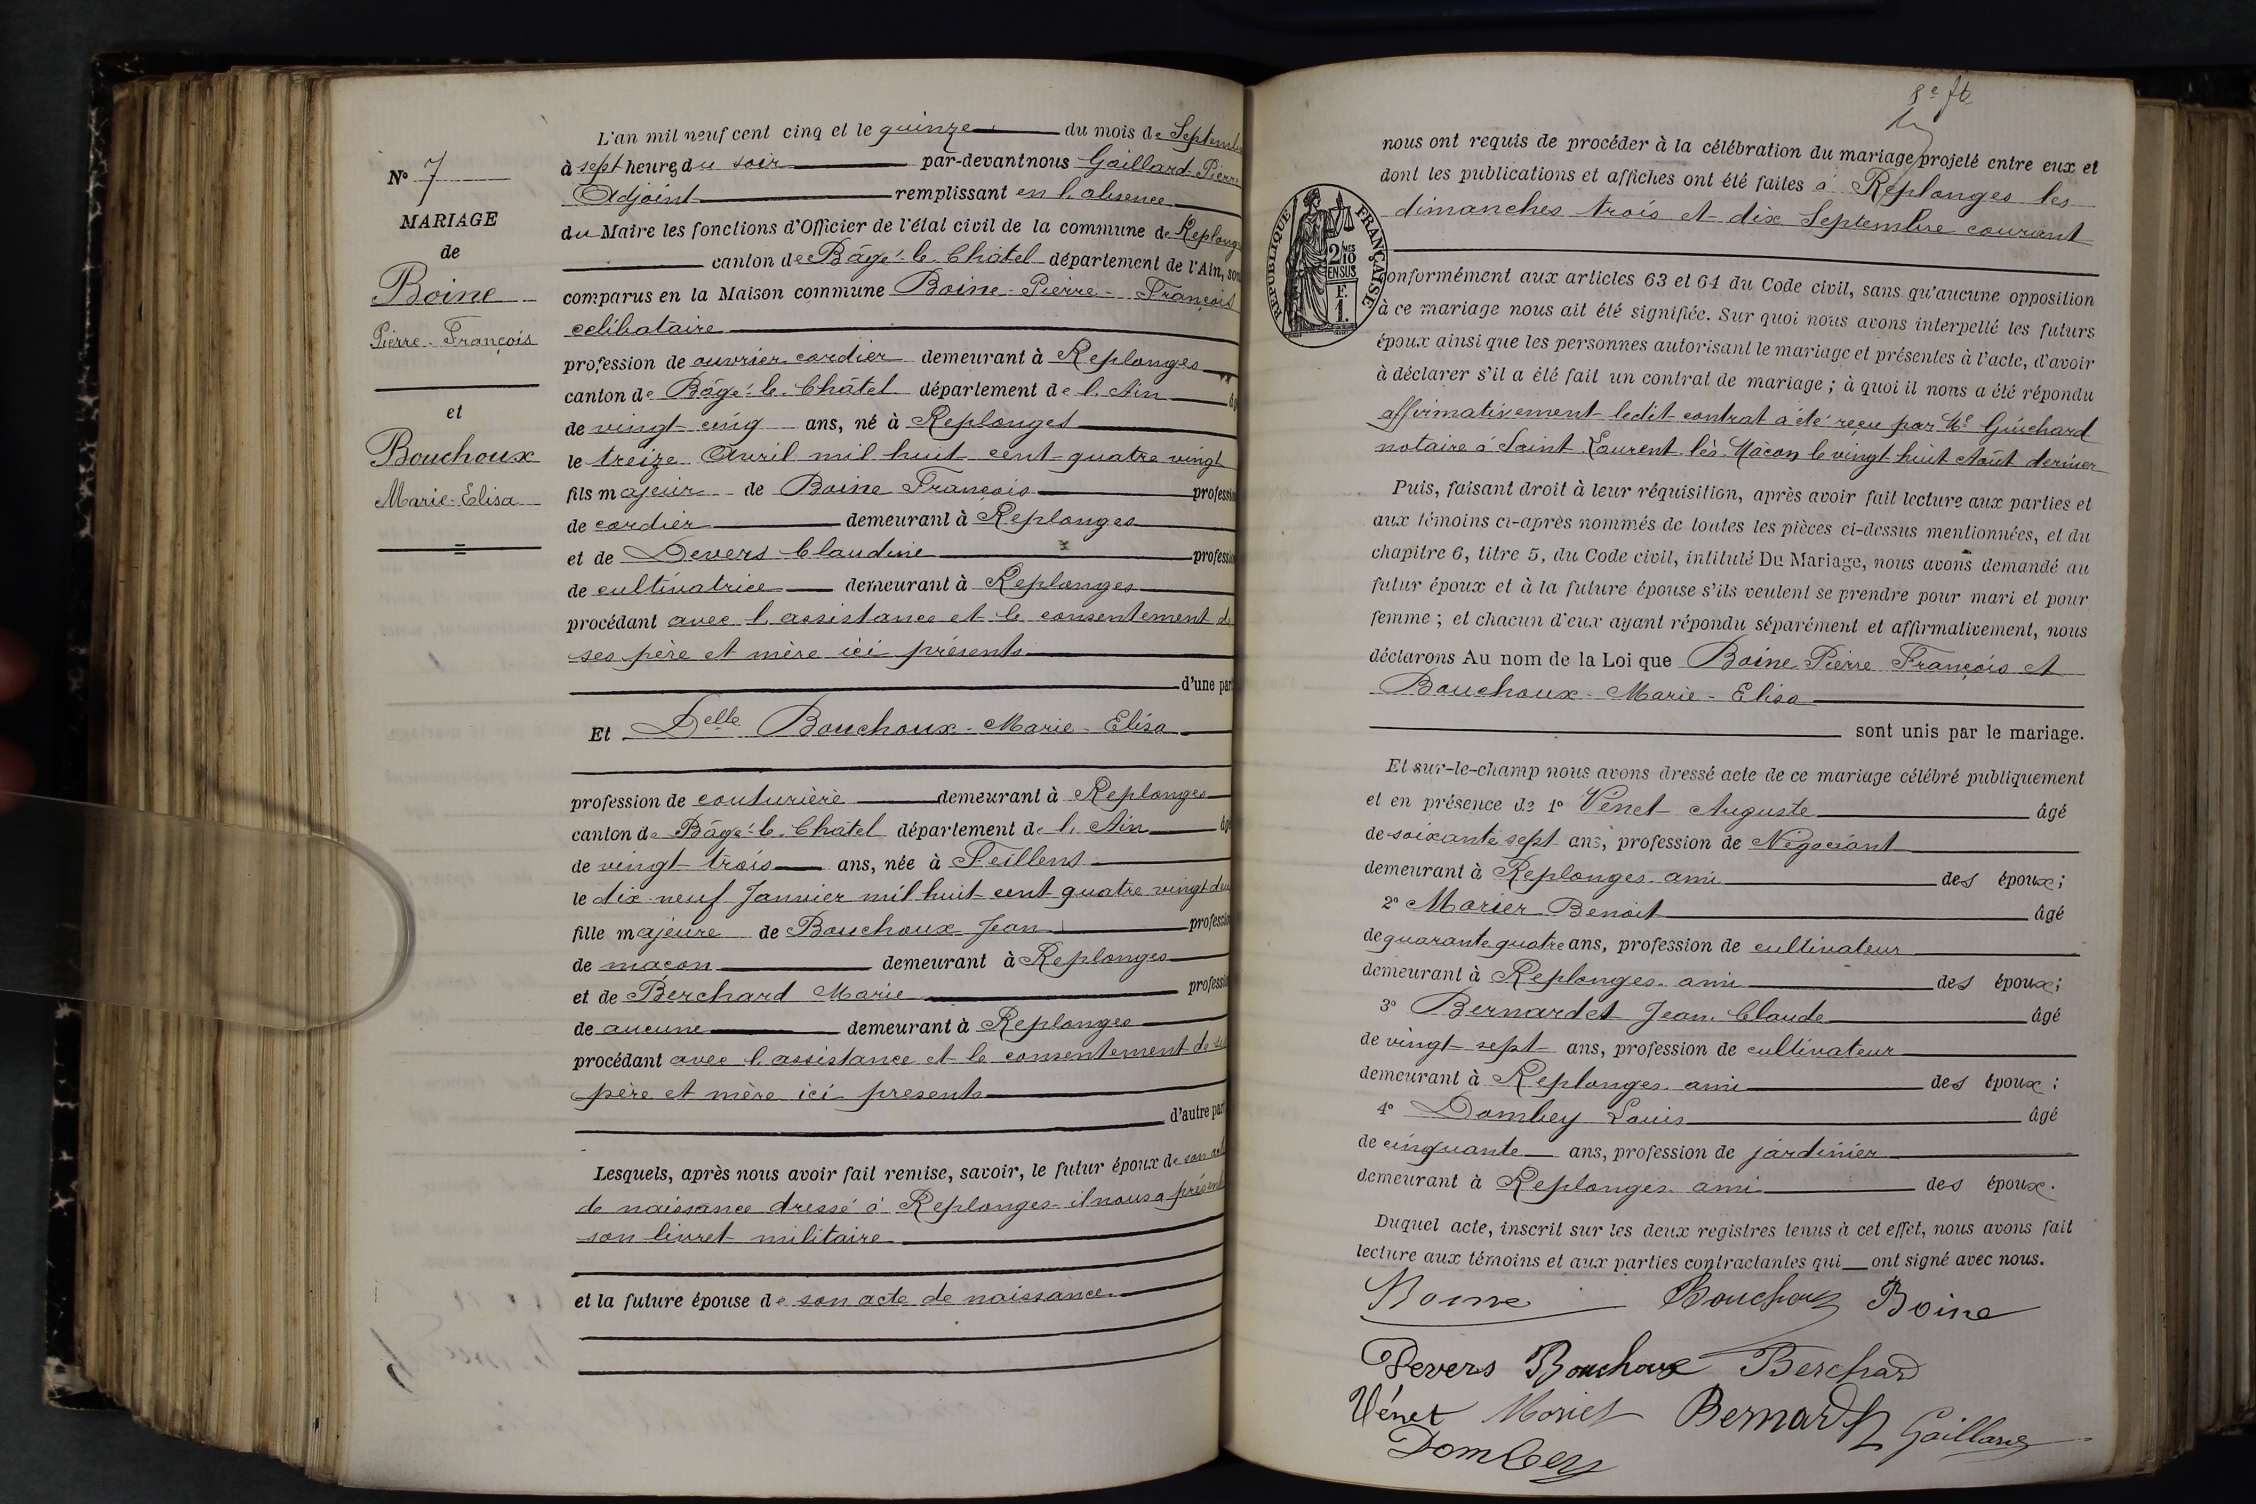 N° 7
MARIAGE
de
Boine
Pierre-François
et
Bouchoux
Marie-Elisa
L'an mil neuf cent cinq et le quinze du mois de Septembre
à sept heures du soir par-devant nous Gaillard Pierre
Adjoint remplissant en l'absence
du Maire les fonctions d'Officier de l'état civil de la commune de Replonges
canton de Bâgé-le-Châtel département de l'Ain, sont
comparus en la Maison commune Boine Pierre-François
celibataire
profession de ouvrier cordier demeurant à Replonges
canton de Bâgé-le-Châtel département de l'Ain âgé
de vingt cinq ans, né à Replonges
le treize Avril mil huit cent quatre vingt
fils majeur de Boine François profession
de cordier demeurant à Replonges
et de Devers Claudine profession
de cultivatrice demeurant à Replonges
procédant avec l'assistance et le consentement de
ses père et mère ici présents
d'une part
Et Delle Bouchoux-Marie-Elisa
profession de couturière demeurant à Replonges
canton de Bâgé-le-Châtel département de l'Ain âgé
de vingt trois ans, née à Feillens
le dix neuf Janvier mil huit cent quatre vingt deux
fille majeure de Bouchoux Jean profession
de maçon demeurant à Replonges
et de Berchard Marie profession
de aucune demeurant à Replonges
procédant avec l'assistance et le consentement de ses
père et mère ici présents
d'autre part
Lesquels, après nous avoir fait remise, savoir, le futur époux de son acte
de naissance dressé à Replonges il nous a présenté
son livret militaire
et la future épouse de son acte de naissance
8e ft
RÉPUBLIQUE FRANÇAISE
2/10 MES
EN SUS
F.
1.
nous ont requis de procéder à la célébration du mariage projeté entre eux et
dont les publications et affiches ont été faites à Replonges les
dimanches trois et dix Septembre courant
conformément aux articles 63 et 64 du Code civil, sans qu'aucune opposition
à ce mariage nous ait été signifiée. Sur quoi nous avons interpellé les futurs
époux ainsi que les personnes autorisant le mariage et présentes à l'acte, d'avoir
à déclarer s'il a été fait un contrat de mariage ; à quoi il nous a été répondu
affirmativement ledit contrat a été reçu par Me Guichard
notaire à Saint Laurent lès Mâcon le vingt huit Août dernier
Puis, faisant droit à leur réquisition, après avoir fait lecture aux parties et
aux témoins ci-après nommés de toutes les pièces ci-dessus mentionnées, et du
chapitre 6, titre 5, du Code civil, intitulé Du Mariage, nous avons demandé au
futur époux et à la future épouse s'ils veulent se prendre pour mari et pour
femme ; et chacun d'eux ayant répondu séparément et affirmativement, nous
déclarons Au nom de la Loi que Boine Pierre François et
Bouchoux-Marie-Elisa
sont unis par le mariage.
Et sur-le-champ nous avons dressé acte de ce mariage célébré publiquement
et en présence de 1° Vénet Auguste âgé
de soixante sept ans, profession de Négociant
demeurant à Replonges ami des époux;
2° Morier Benoit âgé
de quarante quatre ans, profession de cultivateur
demeurant à Replonges ami des époux;
3° Bernardet Jean Claude âgé
de vingt sept ans, profession de cultivateur
demeurant à Replonges ami des époux;
4° Dombey Louis âgé
de cinquante ans, profession de jardinier
demeurant à Replonges ami des époux.
Duquel acte, inscrit sur les deux registres tenus à cet effet, nous avons fait
lecture aux témoins et aux parties contractantes qui ont signé avec nous.
Boine Bouchoux Boine
Devers Bouchoux Berchard
Vénet Morier Bernardet Gaillard
Dombey